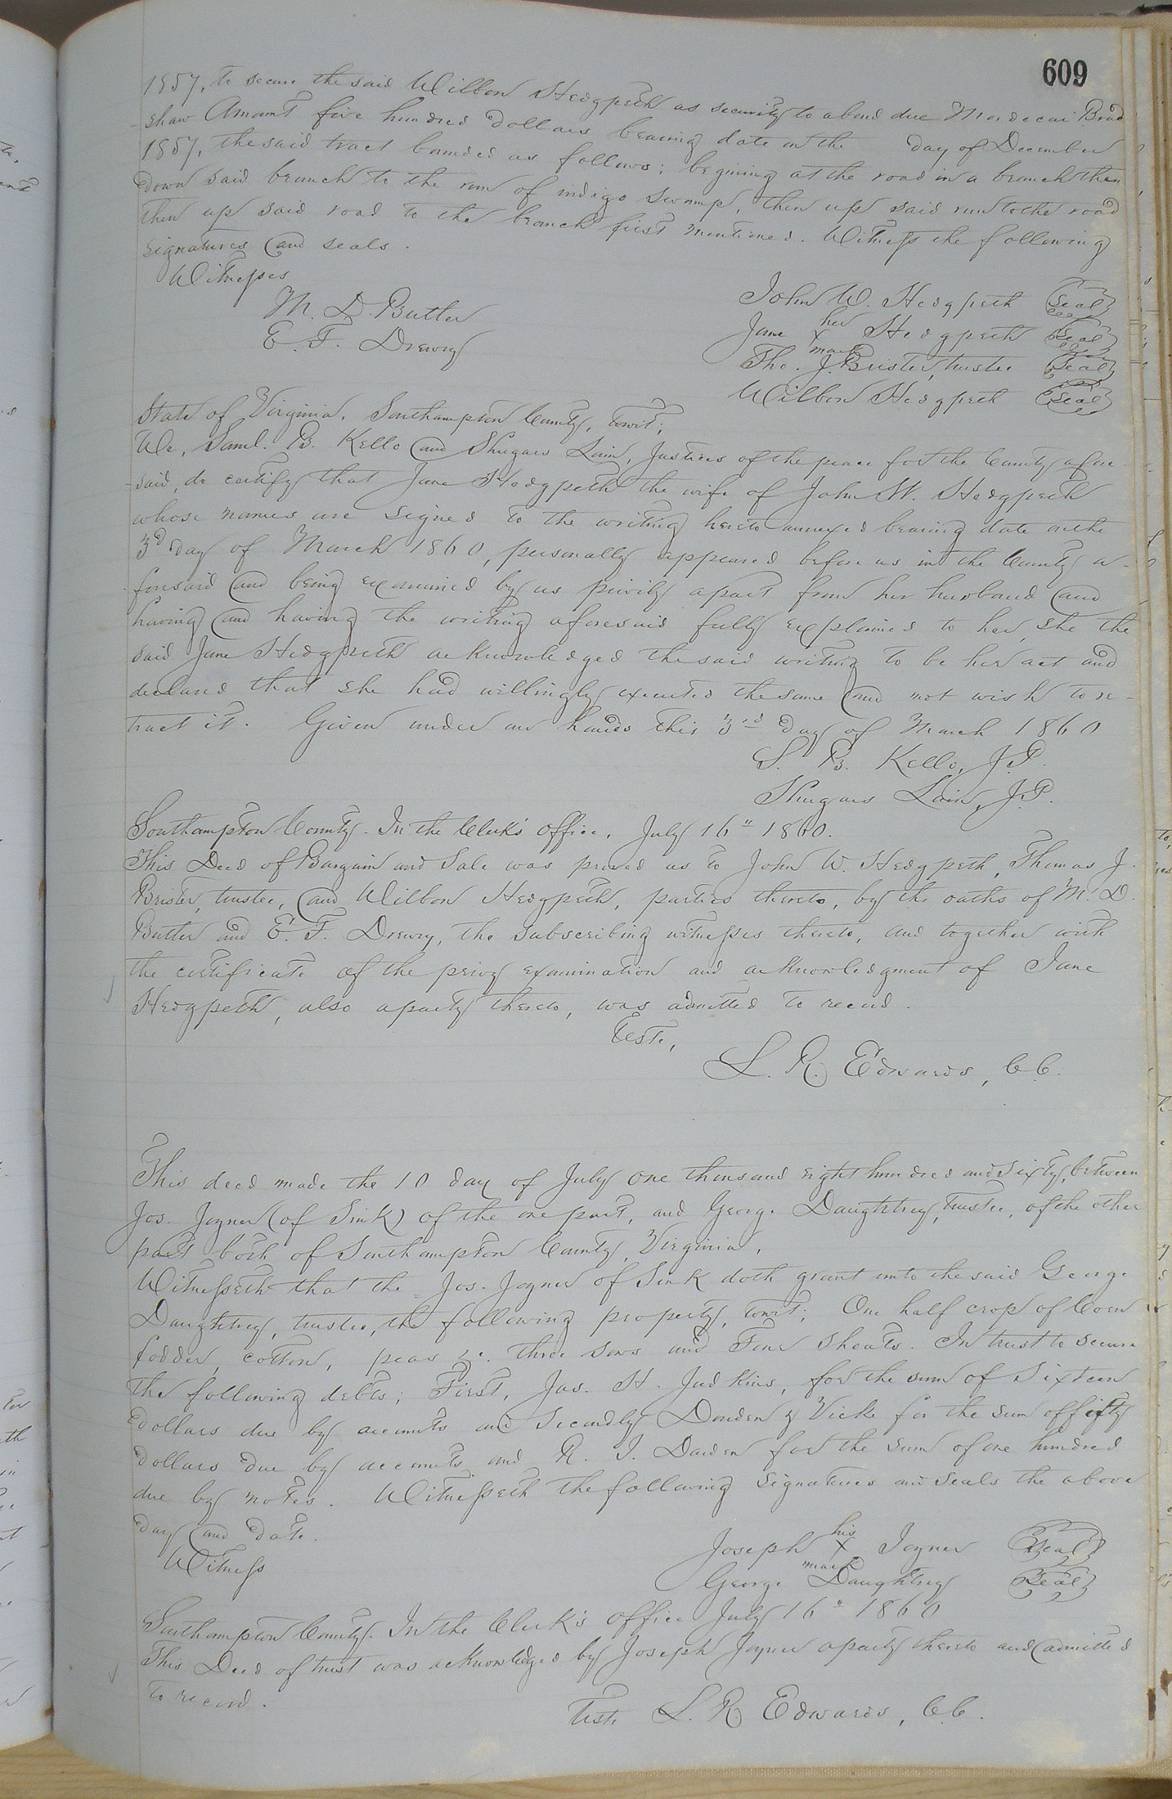 609
1857, to secure the said Wilbon Hedgpeth as security to a bond due Mordecai Brad
-shaw Amount five hundred dollars bearing date on the day of December
1857, the said tract bounded as follows; begining at the road in a branch then
down said branch to the run of indigo swamp, then up said run to the road
then up said road to the branch first mentioned. Witness the following
signatures and seals.
Witnesses
M. D. Butler
E. F. Drewry
John W. Hedgpeth Seal
Jane her x mark Hedgpeth Seal
Tho. J. Brister, trustee Seal
Wilbon Hedgpeth Seal
State of Virginia, Southampton County, towit;
We, Saml. B. Kello and Shugars Lain, Justices of the peace for the County afore
-said, do certify that Jane Hedgpeth the wife of John W. Hedgpeth
whose names are signed to the writing hereto annexed bearing date on the
3d day of March 1860, personally appeared before us in the County a-
foresaid and being examined by us privily apart from her husband and
having and having the writing aforesaid fully explained to her, she the
said Jane Hedgpeth acknowledged the said writing to be her act and
declared that she had willingly executed the same and not wish to re-
tract it. Given under our hands this 3rd day of March 1860
S. B. Kello, J.P.
Shugars Lain, J.P.
Southampton County. In the Clerk's office, July 16" 1860.
This Deed of Bargain and Sale was proved as to John W. Hedgpeth, Thomas J.
Brister, trustee, and Wilbon Hedgpeth, parties thereto, by the oaths of M. D.
Butler and E. F. Drewry, the subscribing witnesses thereto, and together with
the certificate of the privy examination and acknowledgment of Jane
Hedgpeth, also a party thereto, was admitted to record.
Teste,
L. R. Edwards, C.C.
This deed made the 10 day of July one thousand eight hundred and sixty, between
Jos. Joyner (of Sink) of the one part, and George Daughtrey, trustee, of the other
part both of Southampton County, Virginia,
Witnesseth that the Jos. Joyner of Sink doth grant unto the said George
Daughtrey, trustee, the following property, towit; One half crop of Corn
fodder, cotton, peas &c. three sows and Four Shoats. In trust to secure
the following debts; First, Jas. H. Judkins, for the sum of Sixteen
dollars due by accounts and Secondly Dowden & Vick for the sum off fifty
dollars due by accounts and R. J. Darden for the sum of one hundred
due by notes. Witnesseth the following signatures and seals the above
day and date.
Witness
Joseph his x mark Joyner Seal
George Daughtrey Seal
Southampton County. In the Clerk's office July 16" 1860
This Deed of trust was acknowledged by Joseph Joyner a party thereto and admitted
to record.
Teste L. R. Edwards, C.C.